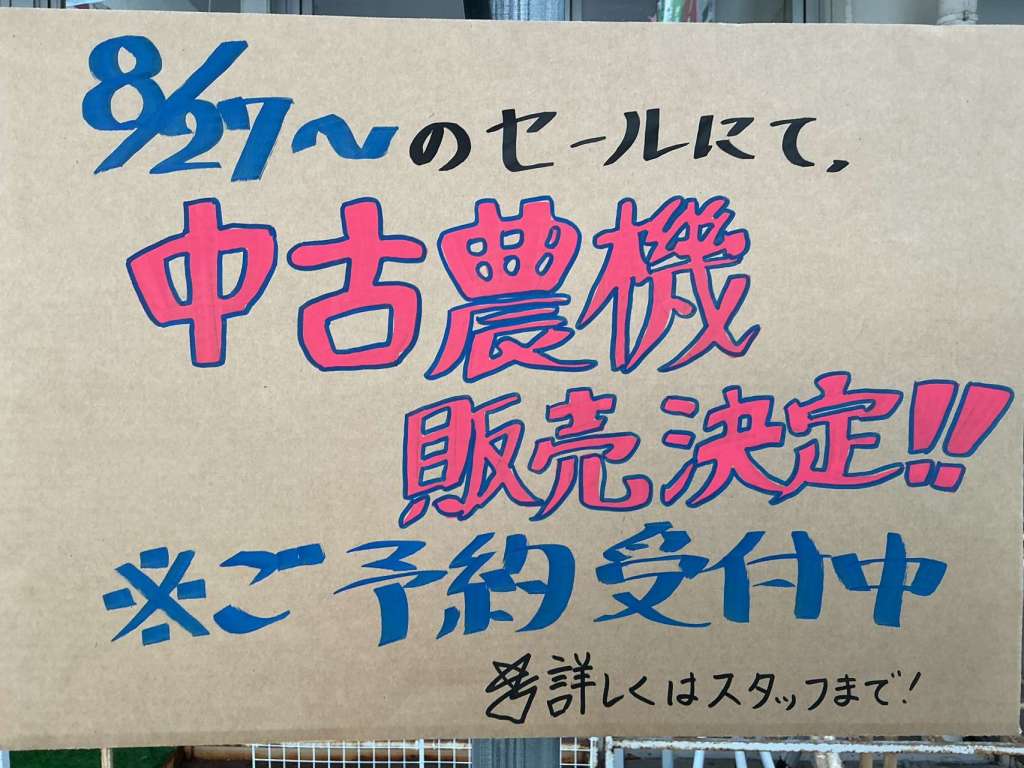 8/27〜のセールにて,
中古農機
販売決定!!
※ご予約受付中
詳しくはスタッフまで!